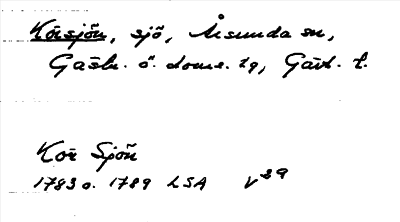 Korsjön, sjö, Årsunda sn,
Gästr. ö. doms. tg, Gävl. l.
Kor Sjön
1783 o. 1789 LSA V39